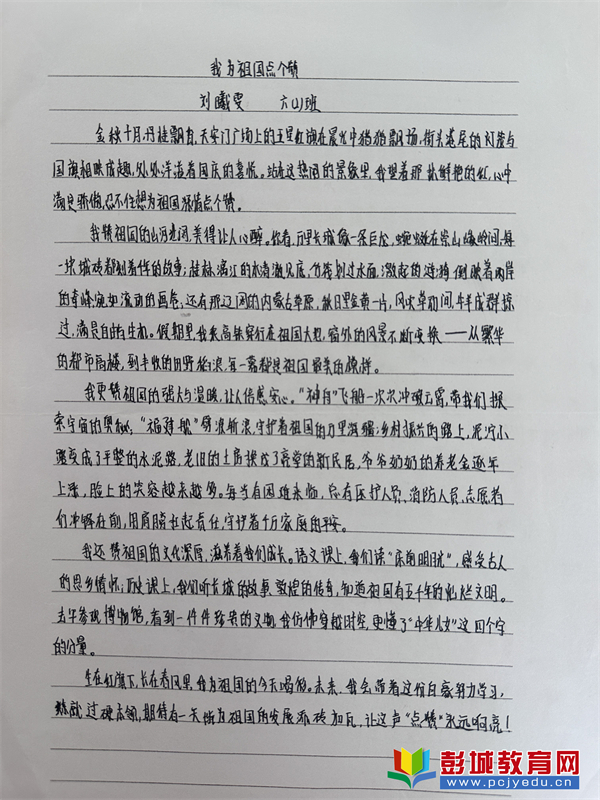 我为祖国点个赞
刘曦雯 六(1)班
金秋十月,丹桂飘香,天安门广场上的五星红旗在晨光中猎猎飘扬,街头巷尾的灯笼与
国旗相映成趣,处处洋溢着国庆的喜悦。站在这热闹的景象里,我望着那抹鲜艳的红,心中
满是骄傲,忍不住想为祖国深情点个赞。
我赞祖国的山河壮阔,美得让人心醉。你看,万里长城像一条巨龙,蜿蜒在崇山峻岭间,每
一块城砖都刻着伟的故事;桂林漓江的水清澈见底,竹筏划过水面,激起的涟漪倒映着两岸
的奇峰,宛如流动的画卷;还有那辽阔的内蒙古草原,秋日里金黄一片,风吹草动间,牛羊成群掠
过,满是自由与生机。假期里,我乘高铁穿行在祖国大地,窗外的风景不断变换——从繁华
的都市高楼,到丰收的田野稻浪,每一幕都是祖国最美的模样。
我更赞祖国的强大与温暖,让人倍感安心。“神舟”飞船一次次冲破云霄,带我们探
索宇宙的奥秘;“福建舰”劈波斩浪,守护着祖国的万里海疆;乡村振兴的路上,泥泞小
路变成了平整的水泥路,老旧的土房换成了亮堂的新民居,爷爷奶奶的养老金逐年
上涨,脸上的笑容越来越多。每当有困难来临,总有医护人员、消防人员、志愿者
们冲锋在前,用肩膀扛起责任,守护着千万家庭的平安。
我还赞祖国的文化深厚,滋养着我们成长。语文课上,我们读“床前明月光”,感受古人
的思乡情怀;历史课上,我们听长城的故事、敦煌的传奇,知道祖国有五千年的灿烂文明。
去年参观博物馆,看到一件件珍贵的文物,我仿佛穿越时空,更懂了“中华儿女”这四个字
的分量。
生在红旗下,长在春风里,我为祖国的今天喝彩。未来,我会带着这份自豪努力学习,
练就过硬本领,期待有一天能为祖国的发展添砖加瓦,让这声“点赞”永远响亮!
彭城教育网
www.pcjyedu.com